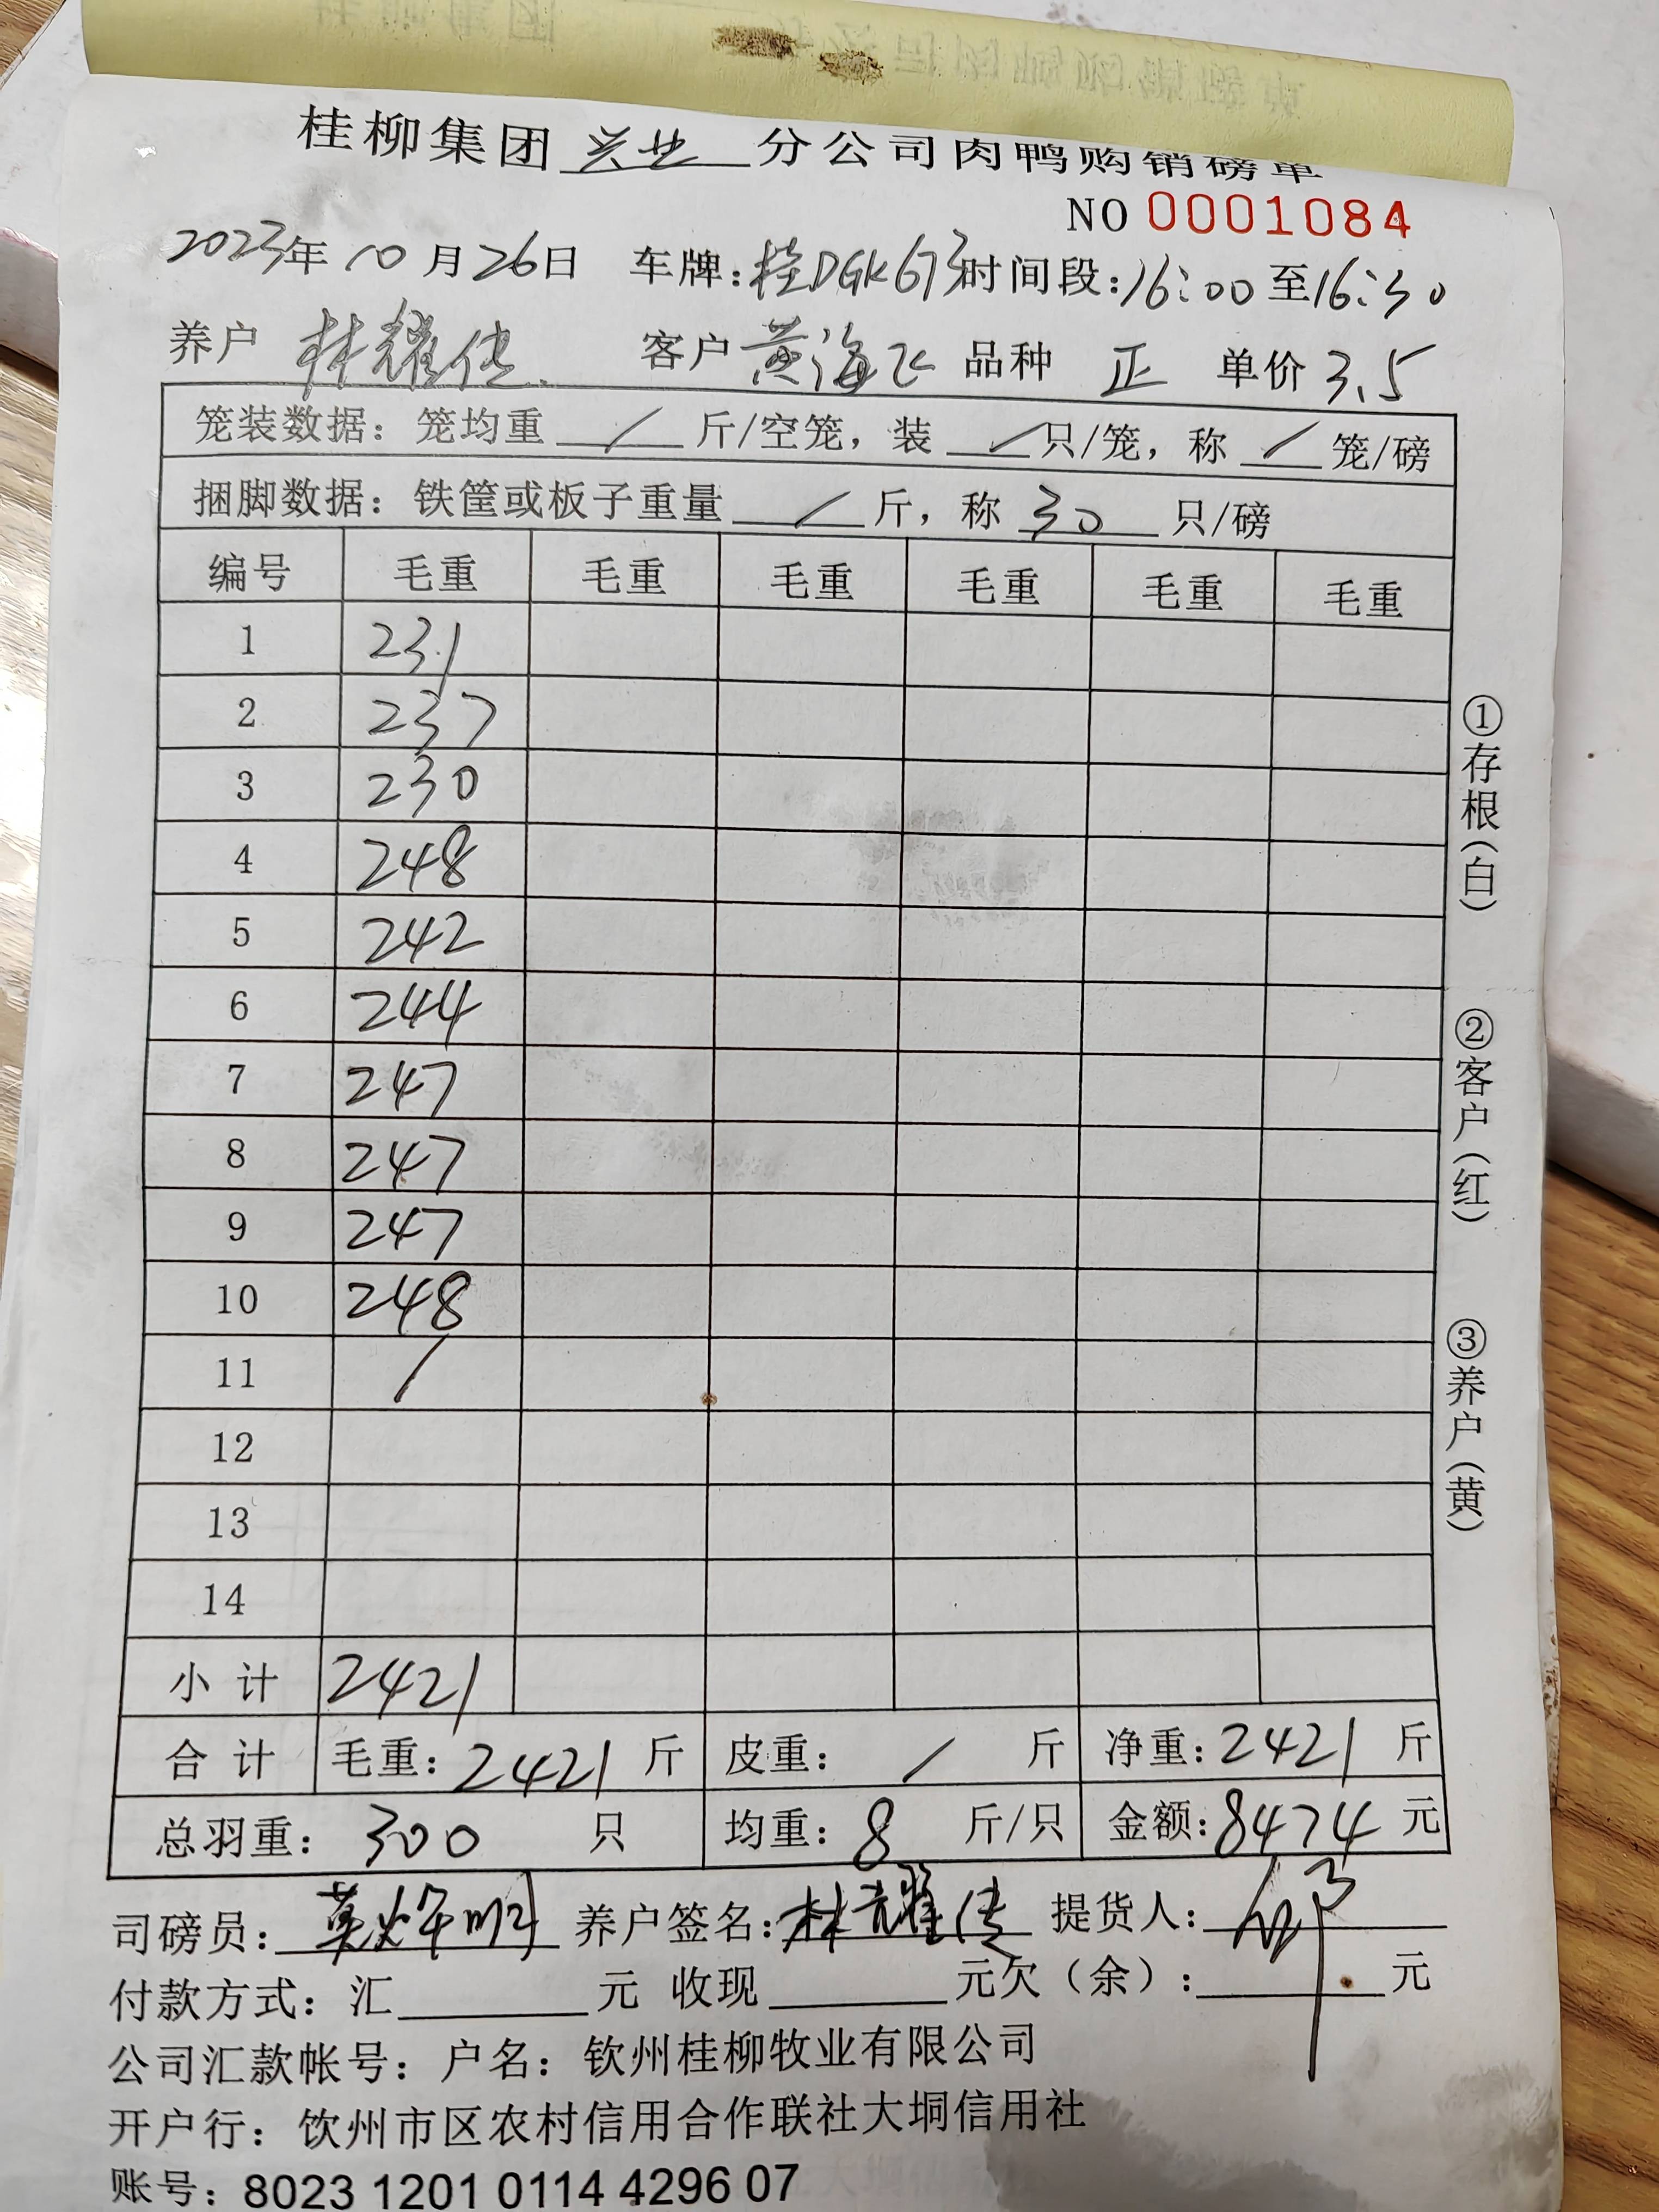 桂柳集团 兴业 分公司肉鸭购销磅单
NO 0001084
2023年 10月26日 车牌:桂DGK673 时间段:16:00至16:30
养户 林耀传 客户 黄海飞 品种 正 单价 3.5
笼装数据:笼均重 / 斤/空笼,装 / 只/笼,称 / 笼/磅
捆脚数据:铁筐或板子重量 / 斤,称 30 只/磅
编号 毛重 毛重 毛重 毛重 毛重 毛重
1 231
2 237
3 230
4 248
5 242
6 244
7 247
8 247
9 247
10 248
11 /
12
13
14
小计 2421
合计 毛重:2421 斤 皮重: / 斤 净重:2421 斤
总羽重:300 只 均重:8 斤/只 金额:8474 元
司磅员: 养户签名:林耀传 提货人:
付款方式:汇 元 收现 元欠(余): 元
公司汇款帐号:户名:钦州桂柳牧业有限公司
开户行:饮州市区农村信用合作联社大垌信用社
账号:8023 1201 0114 4296 07
①存根(白)
②客户(红)
③养户(黄)